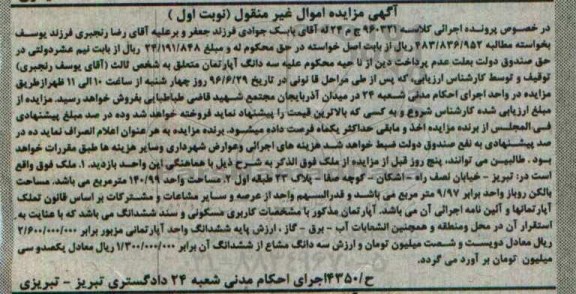 آگهی مزایده اموال غیر منقول (نوبت اول )
در خصوص پرونده اجرائی کلاسه ۹۶۰۳۲۱ ج م ۲۴ له آقای بابک جوادی فرزند جعفر و برعلیه آقای رضا رنجبری فرزند یوسف
بخواسته مطالبه ۴۸۳/۸۳۶/۹۵۲ ریال از بابت اصل خواسته در حق محکوم له و مبلغ ۲۴/۱۹۱/۸۴۸ ریال از بابت نیم عشردولتی در
حق صندوق دولت بعلت عدم پرداخت دین از نا حیه محکوم علیه سه دانگ آپارتمان متعلق به شخص ثالث (آقای یوسف رنجبری)
توقیف و توسط کارشناس ارزیابی که پس از طی مراحل قا نونی در تاریخ ۹۶/۶/۲۹ روز چهار شنبه از ساعت ۱۰ الی ۱۱ ظهرازطریق
مزایده در واحد اجرای احکام مدنی شعبه ۲۴ در میدان آذربایجان مجتمع شهید قاضی طباطبایی بفروش خواهد رسید. مزایده از
مبلغ ارزیابی شده کارشناس شروع و به کسی که بالاترین قیمت را پیشنهاد نماید فروخته خواهد شد وده در صد مبلغ پیشنهادی
فی المجلس از برنده مزایده اخذ و مابقی حداکثر یکماه فرصت داده میشود. برنده مزایده به هر عنوان اعلام انصراف نماید ده در
صد پیشنهادی به نفع صندوق دولت ضبط خواهد شد هزینه های اجرائی وعوارض شهرداری وسایر هزینه ها طبق مقررات خواهد
بود . طالبین می توانند، پنج روز قبل از مزایده از ملک فوق الذکر به شرح ذیل با هماهنگی این واحد بازدید. ۱. ملک فوق واقع
است در: تبریز - خیابان نصف راه - اشکان - کوچه صفا - پلاک ۲۳ طبقه اول ۲. مساحت واحد ۱۴۰/۹۹ مترمربع می باشد. مساحت
بالکن روباز واحد برابر ۹/۹۷ متر مربع می باشد و قدرالسهم واحد از عرصه و سایر مشاعات و مشترکات بر اساس قانون تملک
آپارتمانها و آئین نامه اجرائی آن می باشد. آپارتمان مذکور با مشخصات کاربری مسکونی و سند ششدانگ می باشد که با عنایت به
استقرار آن در محل ومنطقه و همچنین انشعابات آب - برق - گاز . ارزش پایه ششدانگ واحد آپارتمانی مزبور برابر ۲/۶۰۰/۰۰۰/۰۰۰
ریال معادل دویست و شصت میلیون تومان و ارزش سه دانگ مشاع از ششدانگ آن برابر ۱/۳۰۰/۰۰۰/۰۰۰ ریال معادل یکصدو سی
میلیون تومان بر آورد می گردد.
ح/۴۳۵۰اجرای احکام مدنی شعبه ۲۴ دادگستری تبریز - تبریزی